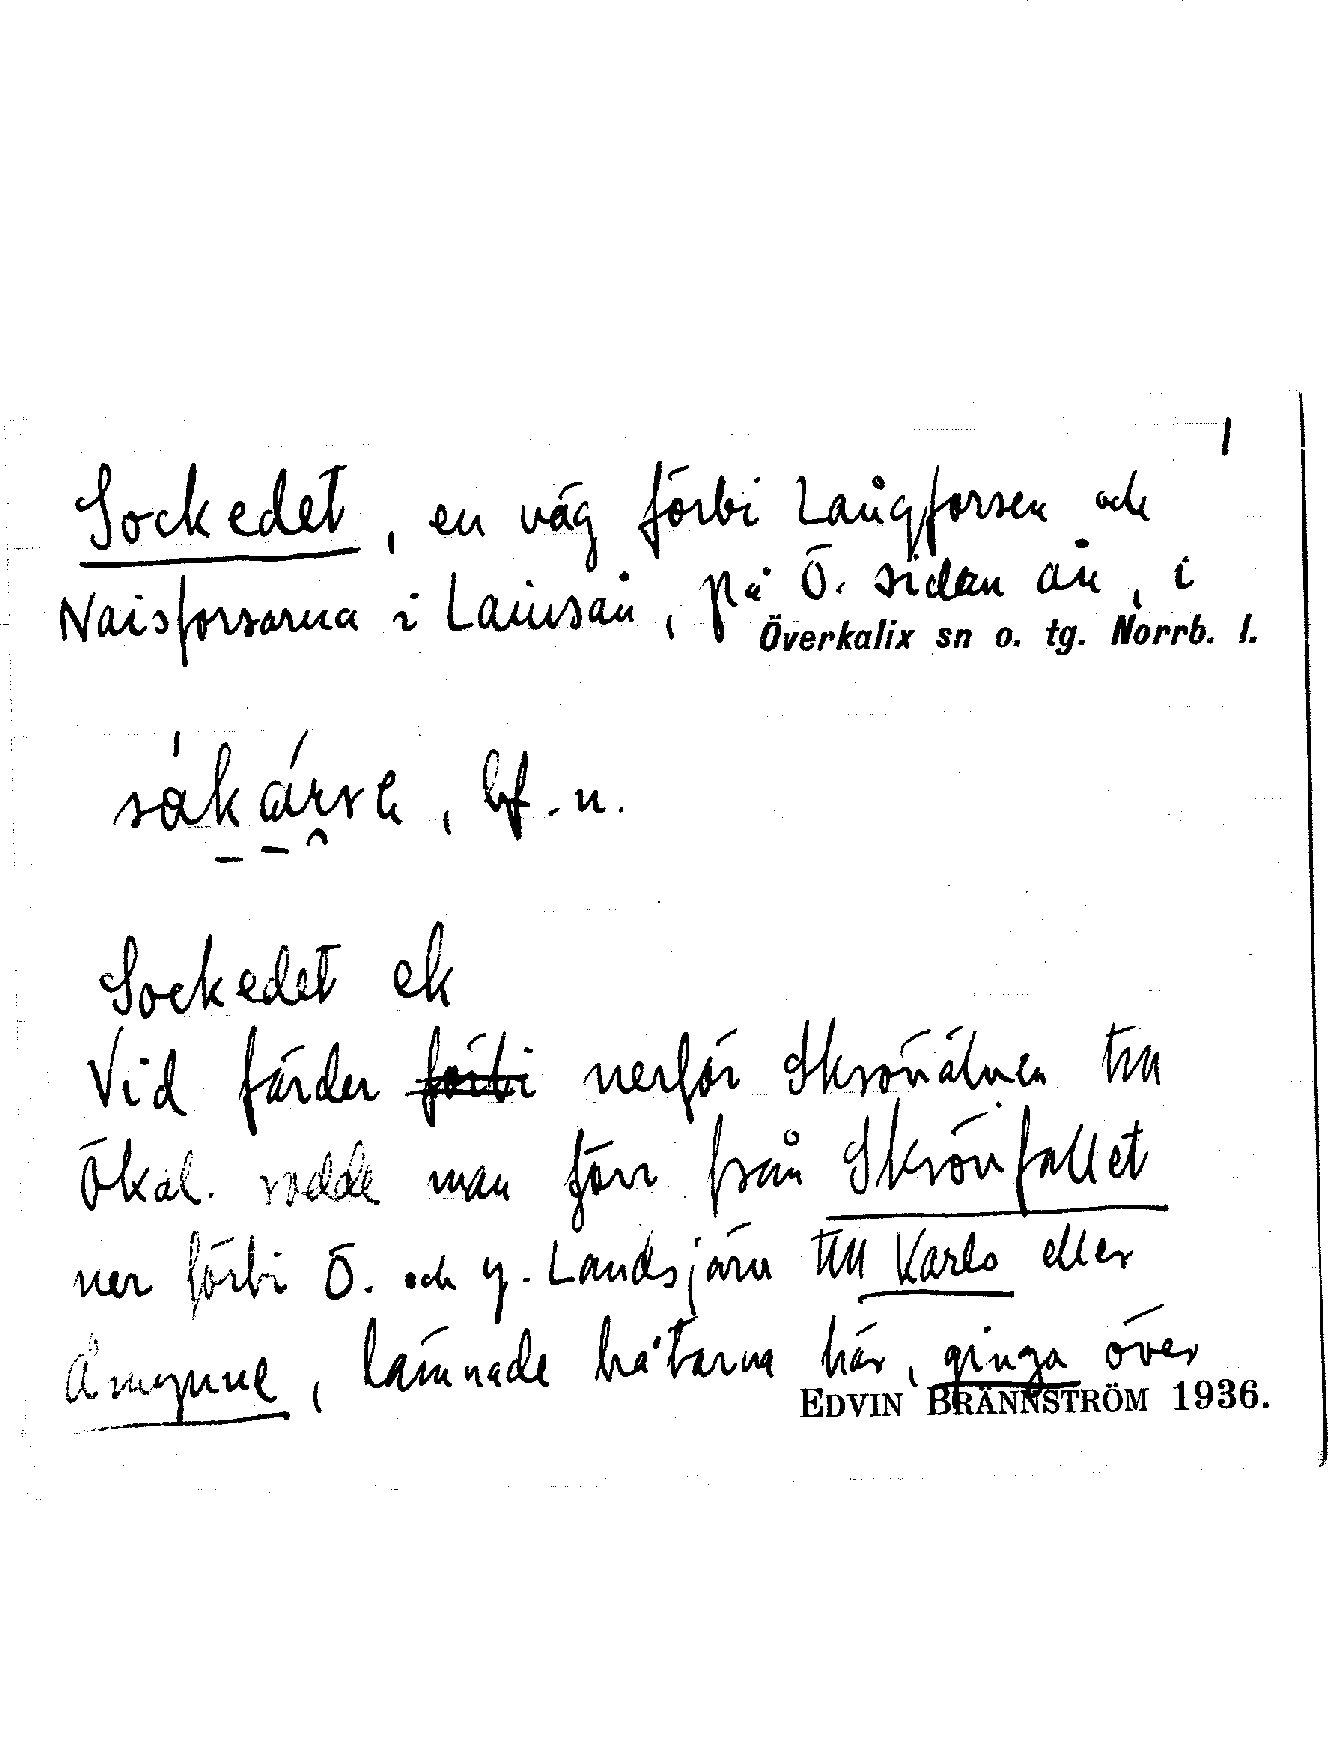 1
Sockedet, en väg förbi Långforsen och
Naisforsarna i Lansån, på Ö. sidan ån, i
Överkalix sn o. tg. Norrb. l.
bf. n.
Sockedet ek
Vid färder förbi nerför Skrövälven till
Ökal. rodde man förr från Skrövfallet
ner förbi Ö. och Y. Landsjärv till Karlo eller
Åmynne, lämnade båtarna här, ginga över
EDVIN BRÄNNSTRÖM 1936.